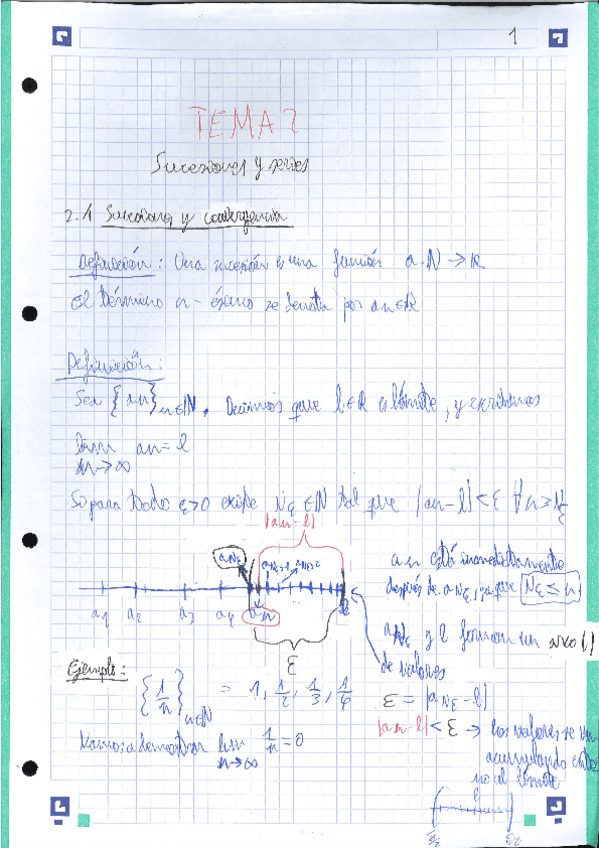 1
TEMA 2
Sucesiones y series
2.1 Sucesiones y convergencia
Definición: Una sucesión es una función a: N → R
El término n-ésimo se denota por an ∈ R
Definición:
Sea {an} n∈N. Decimos que l ∈ R es límite, y escribimos
lim an = l
n→∞
Si para todo ε>0 existe Nε ∈ N tal que |an-l| < ε ∀n ≥ Nε
|an-l|
aNε
a1 a2 a3 a4 an
ε
an está inmediatamente
después de aNε, ya que Nε ≤ n
aNε y l forman un
de valores
ε = |aNε-l|
|an-l| < ε → los valores se van
acumulando
al límite
Ejemplo:
{1/n} n∈N = 1, 1/2, 1/3, 1/4
Vamos a demostrar lim 1/n = 0
n→∞
l